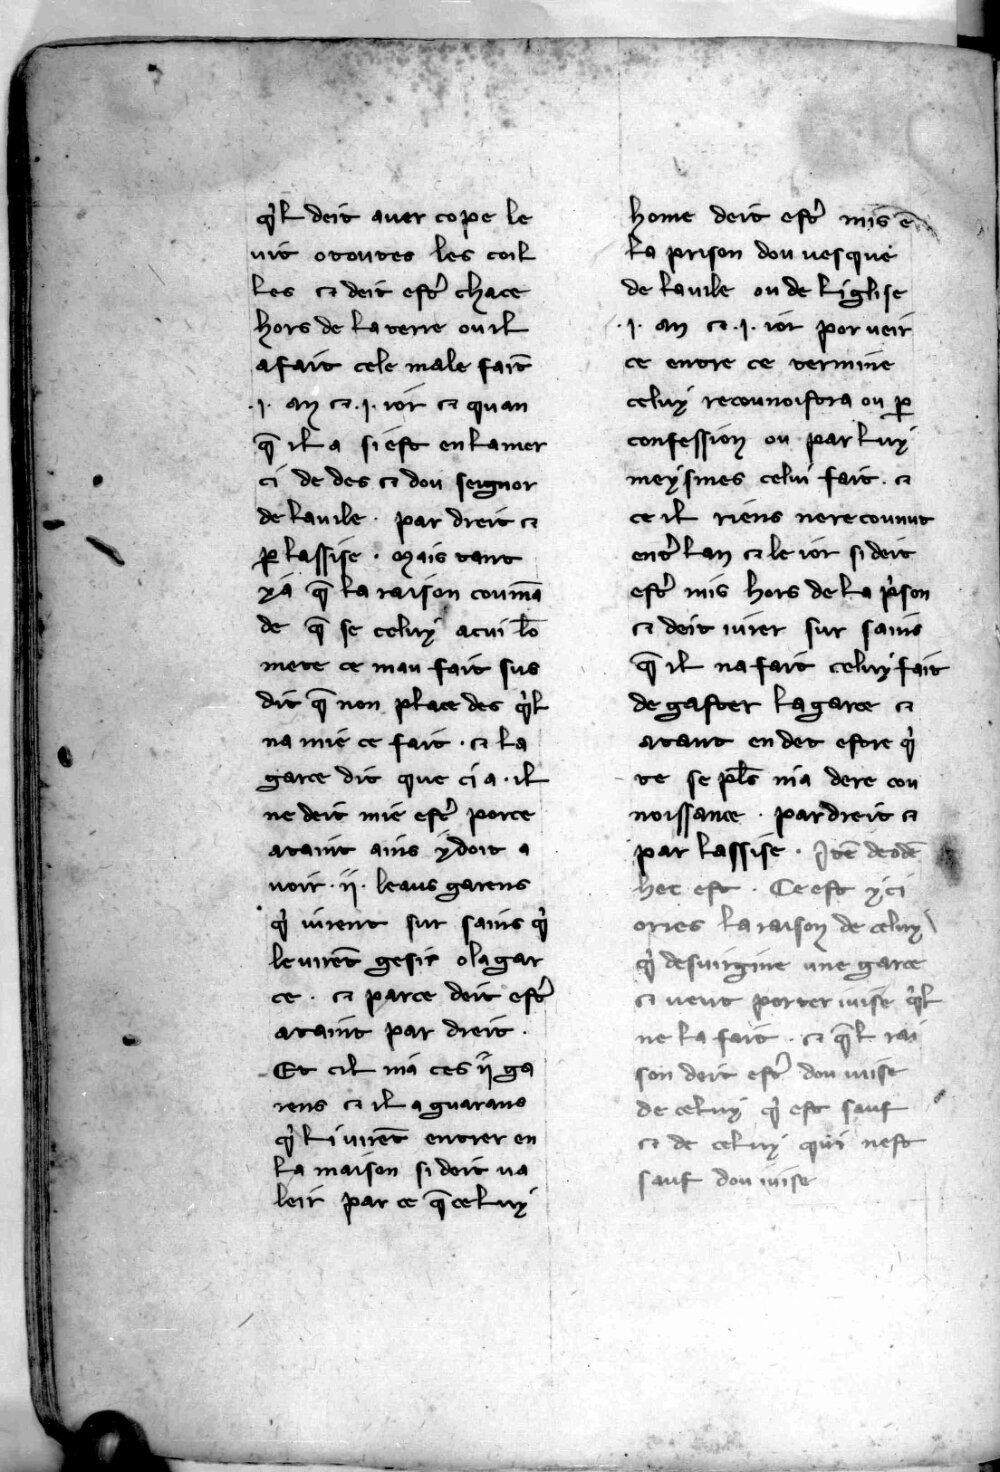 q'l deit aver cope le
vit o toutes les coil
les ⁊ deit estr' chace
hors de la terre ou il
a fait cele male fait̄
.j. an ⁊ .j. ior ⁊ quan
q̄ il a si est en la mer
ci de des ⁊ dou seignor
de la vile . par dreit ⁊
ꝑ lassise . Mais tant
y a q̄ la raison coumā
de q̄ se celuy a cui lō
mete ce mau fait sus
dit q̄ non place des q'l
na mie ce fait . ⁊ la
garce dit que ci a . il
ne deit mie estr' por ce
ataint ains y doit a
voir .ij. leaus garens
q' iurent sur sains q'
le virēt gesir o la gar
ce . ⁊ par ce deit estr'
ataint par dreit .
Et cil nia ces ij ga
rens ⁊ il a guarans
q' li virēt entrer en
la maison si deit va
leir par ce q̄ celuy
home deit estr' mis ē
la prison dou vesque
de la vile ou de liglise
.j. an ⁊ .j. ior por veir
ce entre ce termine
celuy recounoistra ou ꝑ
confession ou par luy
meysmes celui fait . ⁊
ce il riens ne recounut
entr' lan ⁊ le ior si deit
estr' mis hors de la p'son
⁊ deit iurer sur sains
q̄ il na fait celuy fait
de gaster la garce ⁊
atant en det estre q'
te se pl̄s nia de recou
noissance . par dreit ⁊
par lassise . Itē deodē
hec est . Ce est yci
ories la raison de celuy
q' desvirgine une garce
⁊ veut porter iuise q'l
ne la fait . ⁊ q̄l rai
son deit estr' dou iuise
de celuy q' est sauf
⁊ de celuy qui nest
sauf dou iuise